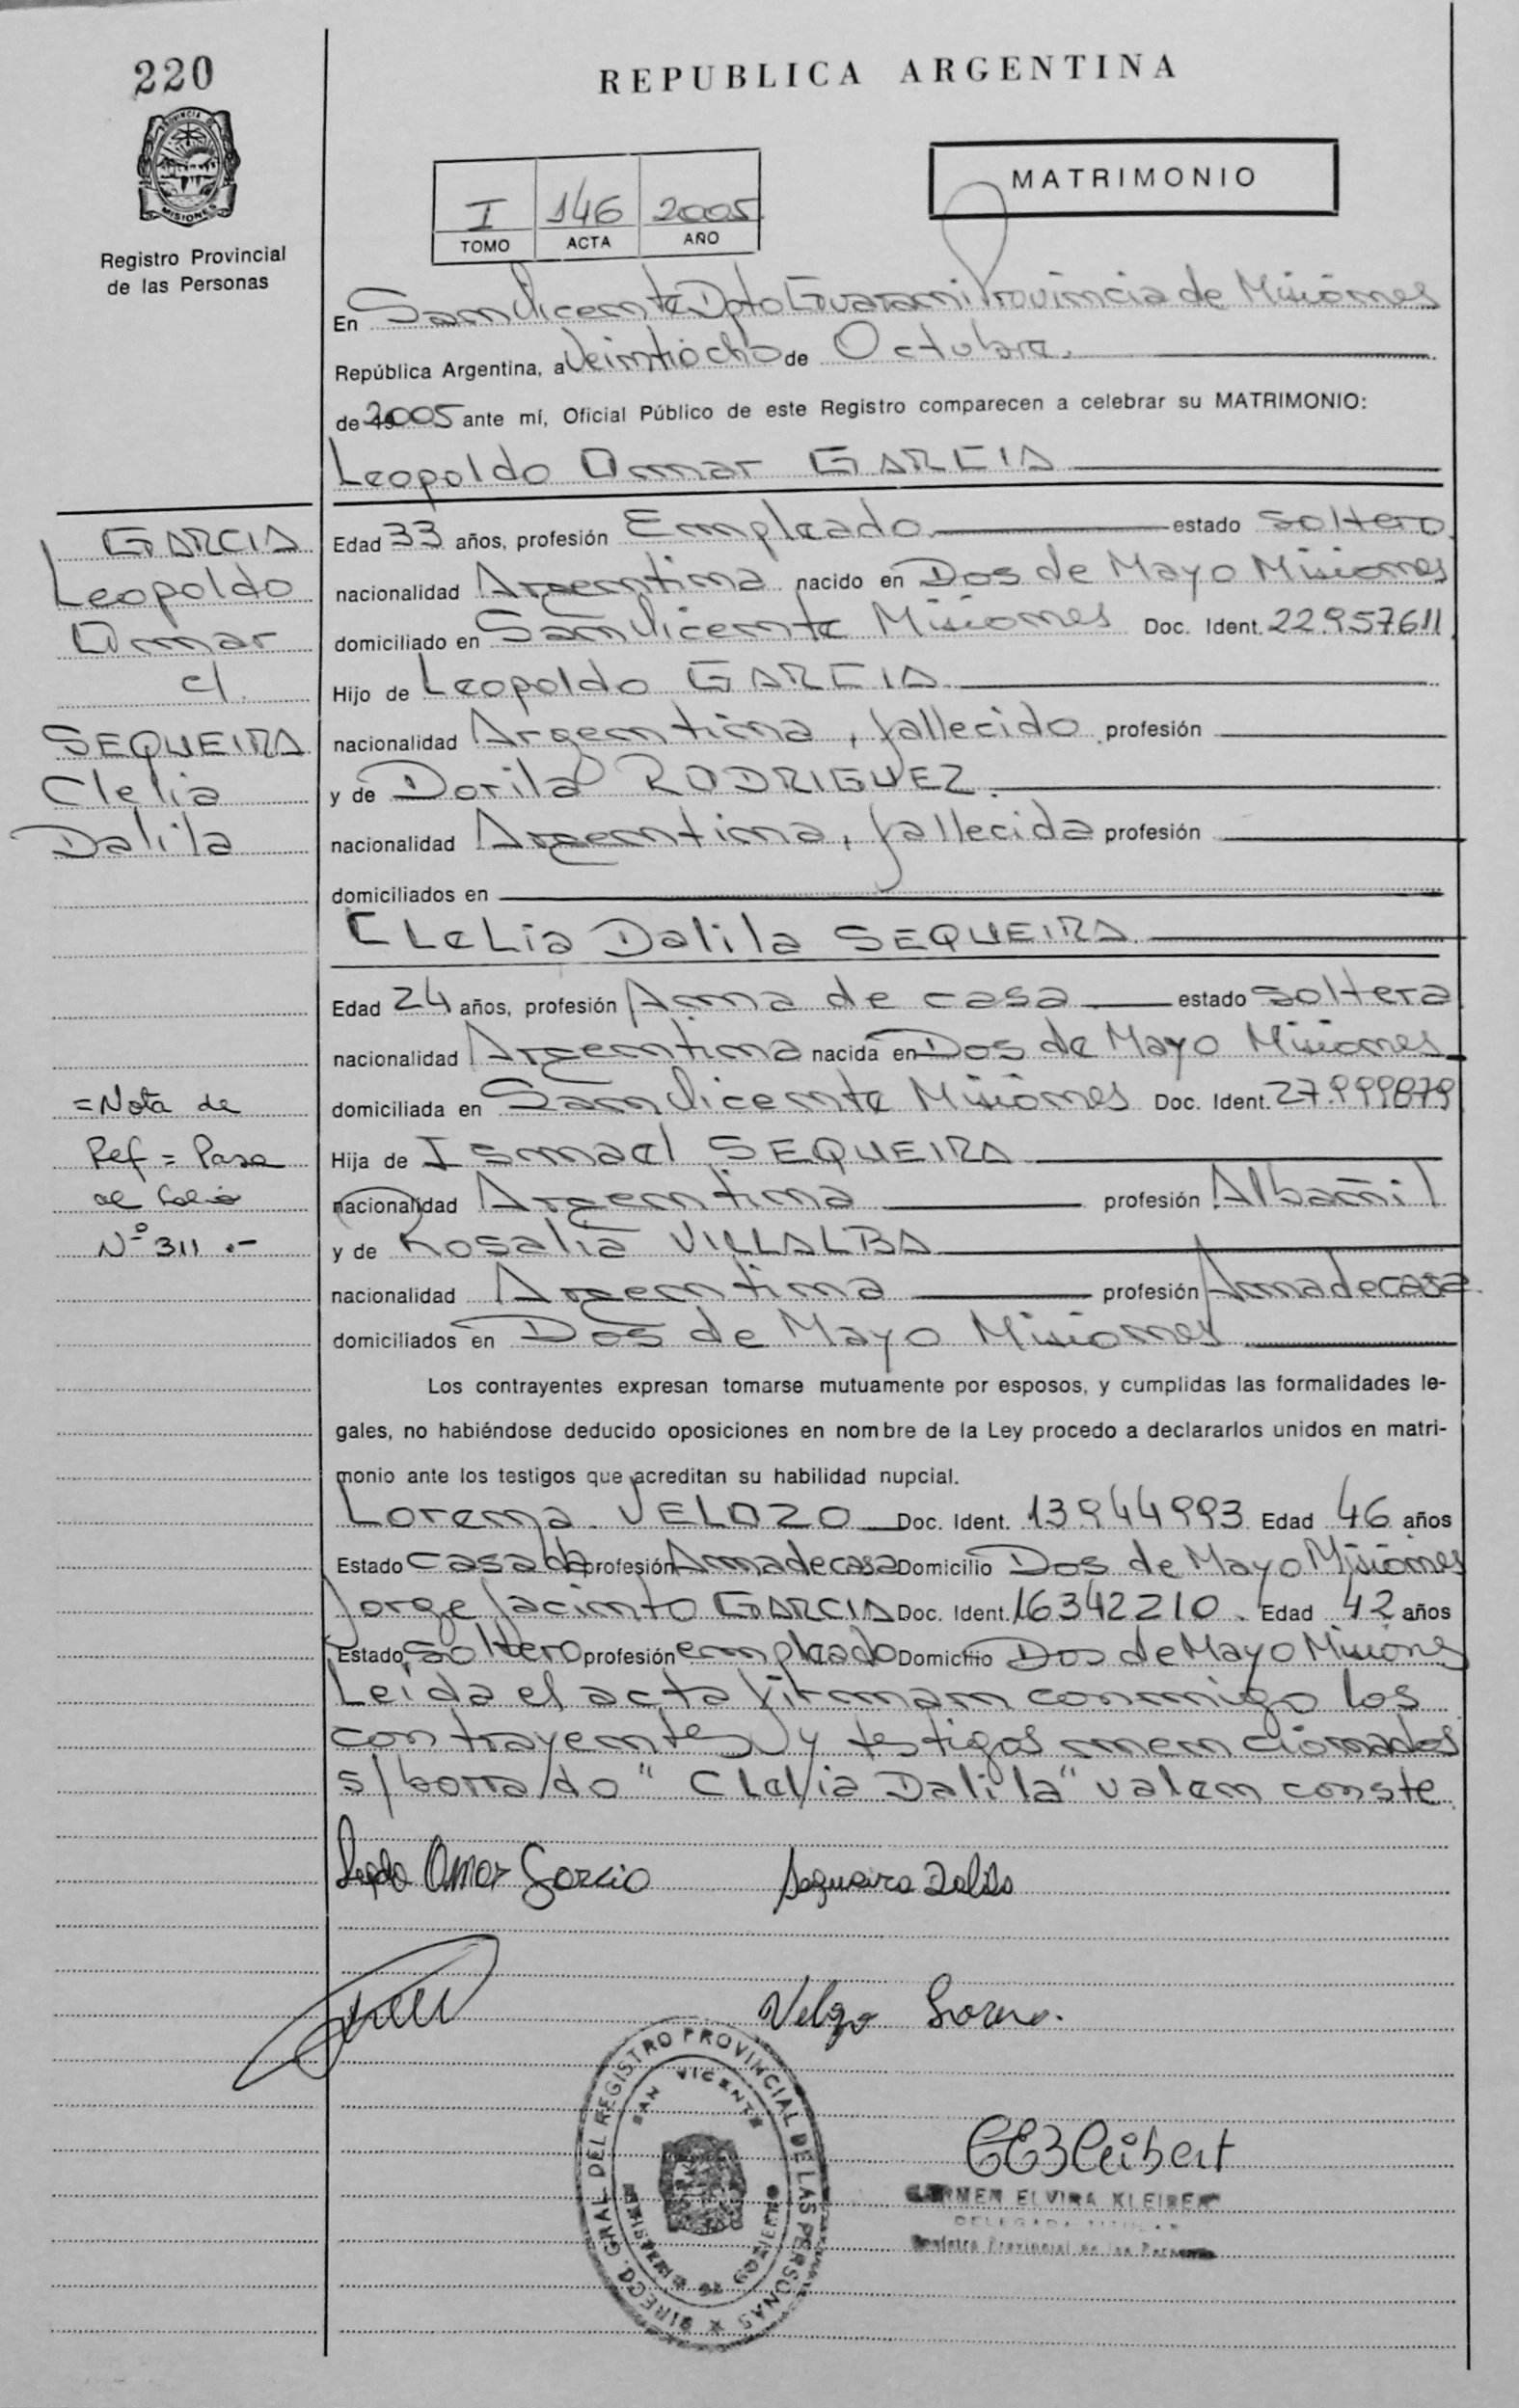 220
REPUBLICA ARGENTINA
PROVINCIA DE
MISIONES
Registro Provincial
de las Personas
I 146 2005
TOMO ACTA AÑO
MATRIMONIO
En San Vicente Dpto Guarani Provincia de Misiones
República Argentina, a Veintiocho de Octubre.
de 2005 ante mí, Oficial Público de este Registro comparecen a celebrar su MATRIMONIO:
Leopoldo Omar GARCIA
GARCIA
Leopoldo
Omar
c/.
SEQUEIRA
Clelia
Dalila
Edad 33 años, profesión Empleado estado soltero
nacionalidad Argentina nacido en Dos de Mayo Misiones
domiciliado en San Vicente Misiones Doc. Ident. 22.957.611
Hijo de Leopoldo GARCIA
nacionalidad Argentina, fallecido profesión
y de Dorila RODRIGUEZ.
nacionalidad Argentina, fallecida profesión
domiciliados en
Clelia Dalila SEQUEIRA
Edad 24 años, profesión Ama de casa estado soltera
nacionalidad Argentina nacida en Dos de Mayo Misiones
domiciliada en San Vicente Misiones Doc. Ident.
Hija de Ismael SEQUEIRA
nacionalidad Argentina profesión Albañil
y de Rosalia VILLALBA
nacionalidad Argentina profesión Ama de casa
domiciliados en Dos de Mayo Misiones
=Nota de
Ref = Pasa
al folio
Nº 311 .-
Los contrayentes expresan tomarse mutuamente por esposos, y cumplidas las formalidades le-
gales, no habiéndose deducido oposiciones en nombre de la Ley procedo a declararlos unidos en matri-
monio ante los testigos que acreditan su habilidad nupcial.
Lorena VELOZO Doc. Ident. 13944993 Edad 46 años
Estado casada profesión Ama de casa Domicilio Dos de Mayo Misiones
Jorge Jacinto GARCIA Doc. Ident. 16342210. Edad 42 años
Estado soltero profesión empleado Domicilio Dos de Mayo Misiones
Leida el acta firman conmigo los
contrayentes y testigos mencionados
s/borrado "Clelia Dalila" valen conste
Omar Garcia Sequeira Dalila
DIRECC. GRAL. DEL REGISTRO PROVINCIAL DE LAS PERSONAS
SAN VICENTE
MISIONES
CARMEN ELVIRA KLEIBERT
DELEGADA TITULAR
Registro Provincial de las Personas